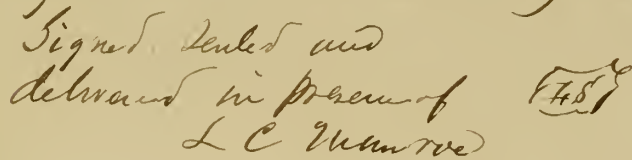 Signed Sealed and
delivered in presence of
L C Munroe